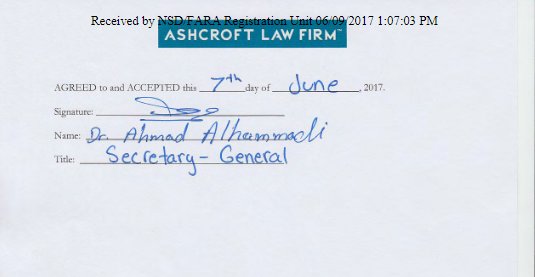 Received by NSD/FARA Registration Unit 06/09/2017 1:07:03 PM
ASHCROFT LAW FIRM™
AGREED to and ACCEPTED this 7th day of June, 2017.
Signature:
Name: Dr. Ahmad Alhammadi
Title: Secretary-General